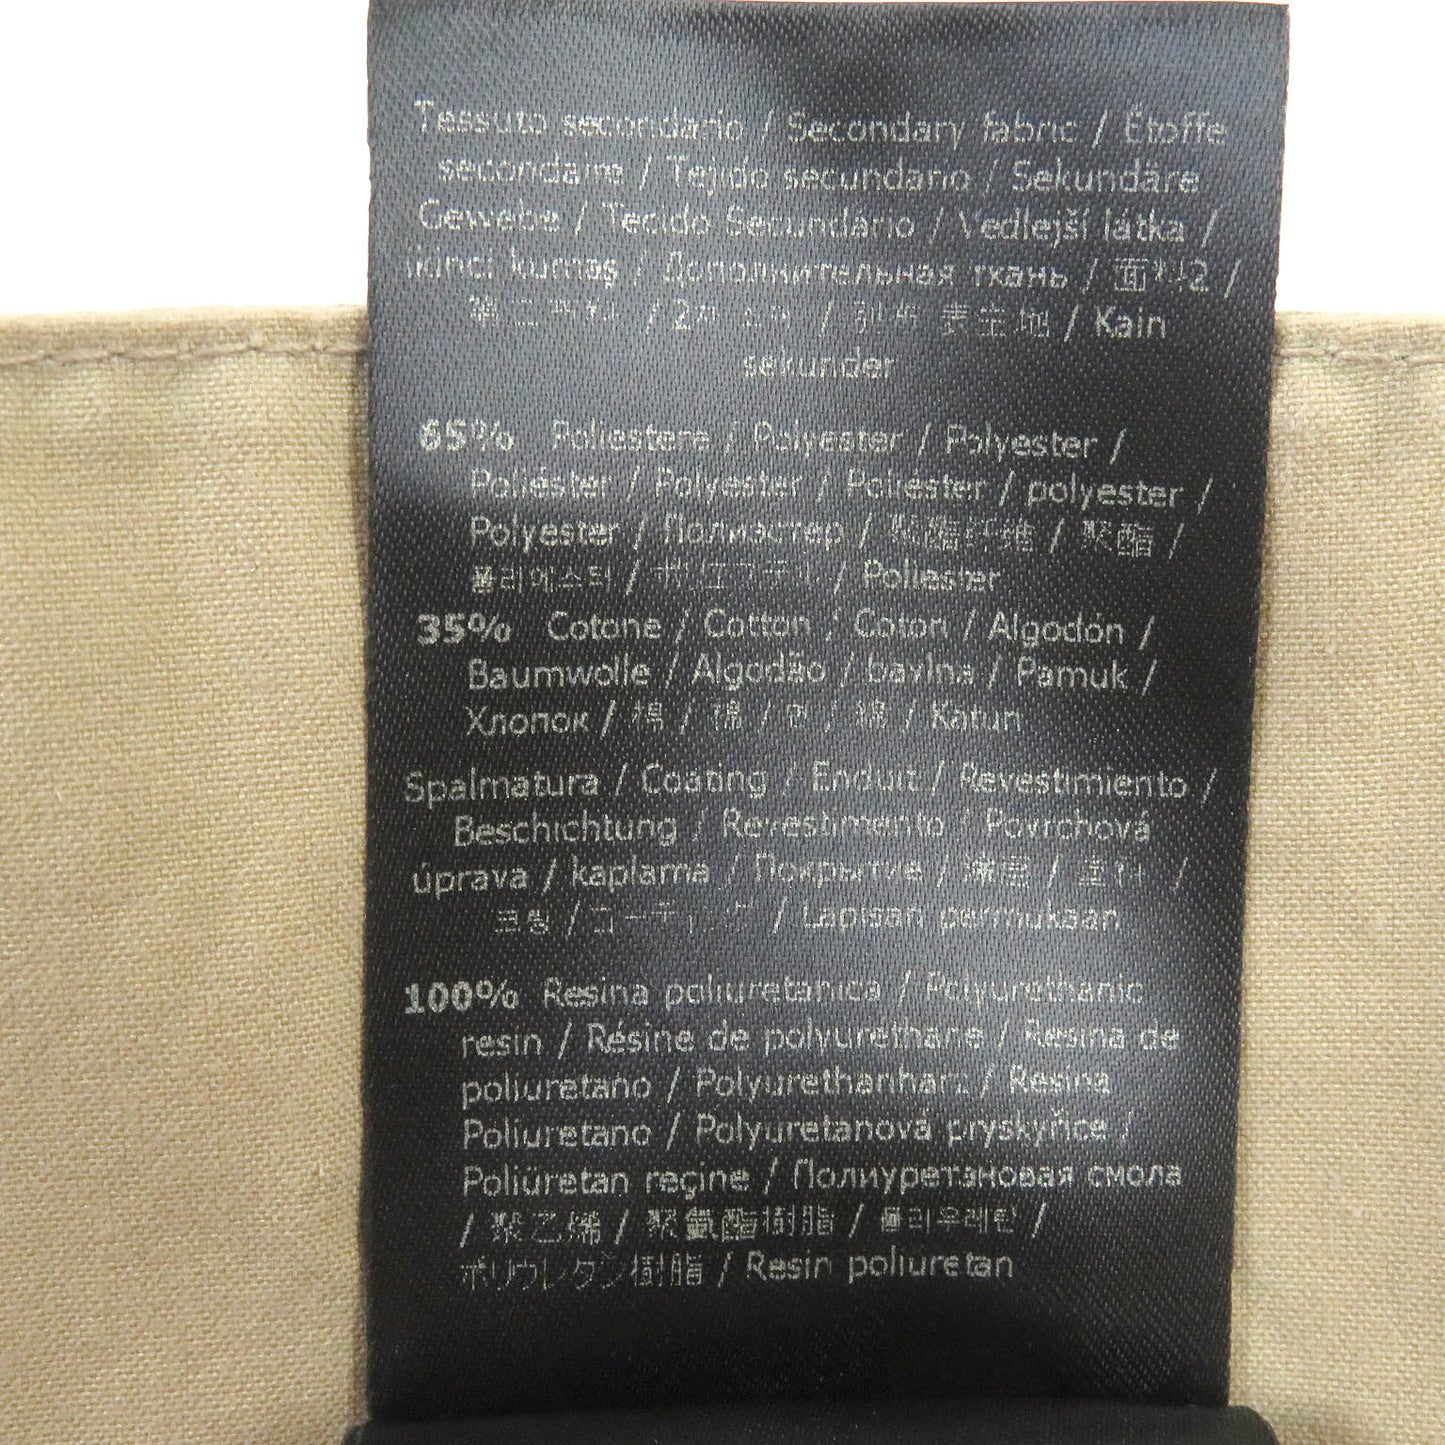 Tessuto secondario / Secondary fabric / Étoffe
secondaire / Tejido secundario / Sekundäre
Gewebe / Tecido Secundário / Vedlejší látka /
ikinci kumaş / Дополнительная ткань / 面料2 /
/ 別布 表生地 / Kain
sekunder
65% Poliestere / Polyester / Polyester /
Poliéster / Polyester / Poliéster / polyester /
Polyester / Полиэстер / 聚酯纤维 / 聚酯 /
폴리에스터 / ポリエステル / Poliester
35% Cotone / Cotton / Coton / Algodón /
Baumwolle / Algodão / bavlna / Pamuk /
Хлопок / 棉 / 棉 / 면 / 綿 / Katun
Spalmatura / Coating / Enduit / Revestimiento /
Beschichtung / Revestimento / Povrchová
úprava / kaplama / Покрытие / /
코팅 / コーティング / Lapisan permukaan
100% Resina poliuretanica / Polyurethanic
resin / Résine de polyuréthane / Resina de
poliuretano / Polyurethanharz / Resina
Poliuretano / Polyuretanová pryskyřice /
Poliüretan reçine / Полиуретановая смола
/ 聚乙烯 / 聚氨酯樹脂 / 폴리우레탄 /
ポリウレタン樹脂 / Resin poliuretan